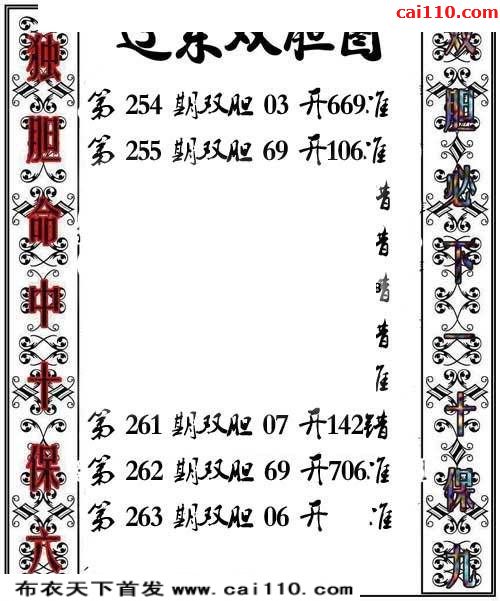 cai110.com
辽东双胆图
独胆命中十保六
第 254 期双胆 03 开669准
第 255 期双胆 69 开106准
第 261 期双胆 07 开142错
第 262 期双胆 69 开706准
第 263 期双胆 06 开 准
双胆必下一十保九
布衣天下首发 www.cai110.com